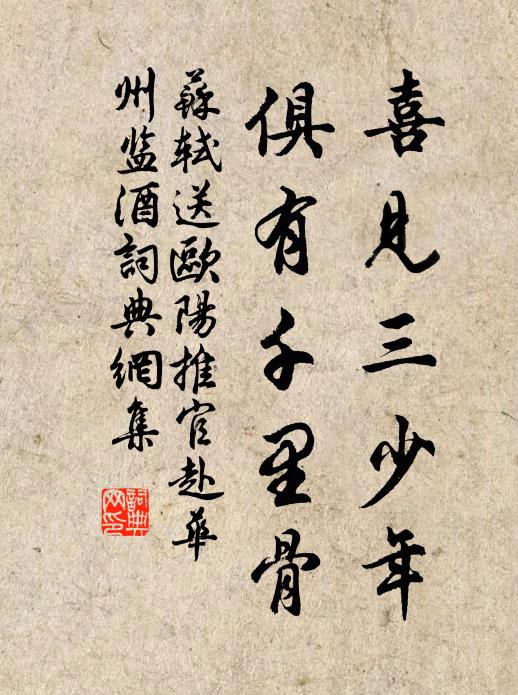 喜見三少年
俱有千里骨
蘇軾送歐陽推官赴華
州监酒詞典網集
詞典
网印